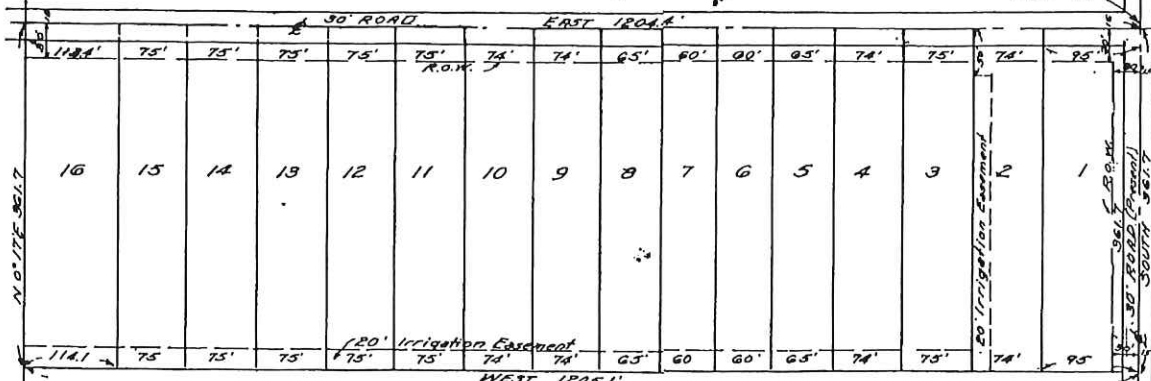 30' ROAD EAST 1204.4'
75' 75' 75' 75' 74' 74' 65' 60' 60' 65' 74' 75' 74' 95'
R.O.W.
50'
16 15 14 13 12 11 10 9 8 7 6 5 4 3 2 1
N 0° 17' E 361.7
20' Irrigation Easement
R.O.W.
361.7
30' ROAD (Present)
SOUTH - 361.7
20' Irrigation Easement
114.1 75 75' 75' 75' 75' 74' 74' 65' 60 60' 65' 74' 75' 74' 95
WEST 1205.1'